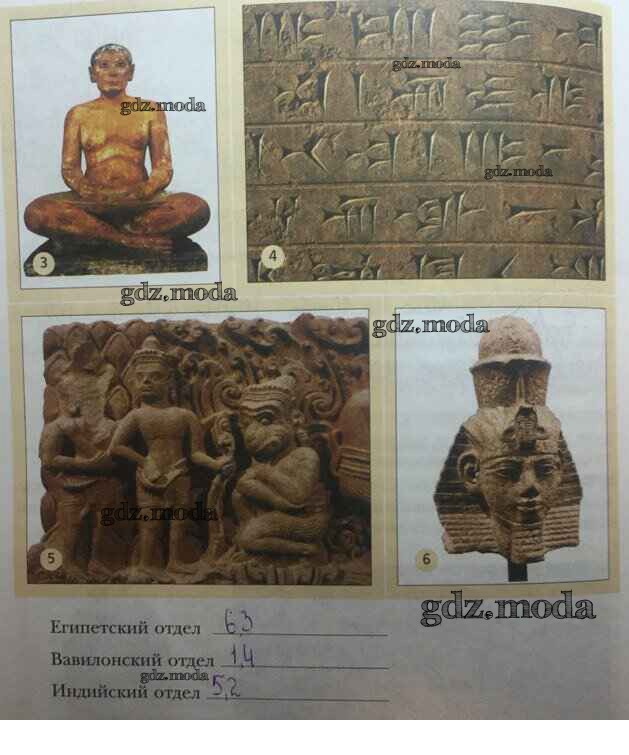 gdz.moda
gdz.moda
gdz.moda
3
4
gdz.moda
gdz.moda
gdz.moda
5
6
gdz.moda
Египетский отдел 6,3
Вавилонский отдел 1,4
gdz.moda
Индийский отдел 5,2